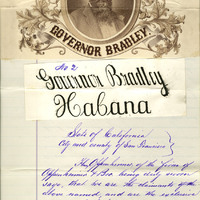 GOVERNOR BRADLEY.
No 2
Governor Bradley
Habana
State of California
City and county of San Francisco
Oppenheimer of the firm of
Oppenheimer & Bro. being duly sworn
says, that we are the claimants of the
above named, and are the exclusive